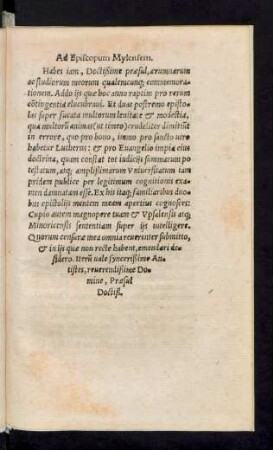 Ad Episcopum Mylensem.
Habes iam, Doctißime præsul, ærumnarum
ac studiorum meorum qualemcunq; commemora-
tionem. Addo ijs quæ hoc anno raptim pro rerum
cõtingentia elucubraui. Et duas postremo episto-
las super fucata multorum leuitate & modestia,
qua multorũ animos (ut timeo) crudeliter dimittũt
in errore, quo pro bono, immo pro sancto uiro
habetur Lutherus: & pro Euangelio impia eius
doctrina, quam constat tot iudicijs summarum po
testatum, atq; amplissimarum Vniuersitatum iam
pridem publice per legitimum cognitionis exa
men damnatam esse. Ex his itaq; familiaribus duo
bus epistolijs mentem meam apertius cognosces:
Cupio autem magnopere tuam & Vpsalensis atq;
Minoricensis sententiam super ijs intelligere.
Quorum censuræ mea omnia reuerenter submitto,
& in ijs quæ non recte habent, emendari de-
sidero. Iterũ uale syncerissime An-
tistes, reuerendissime Do-
mine, Præsul
Doctiß.